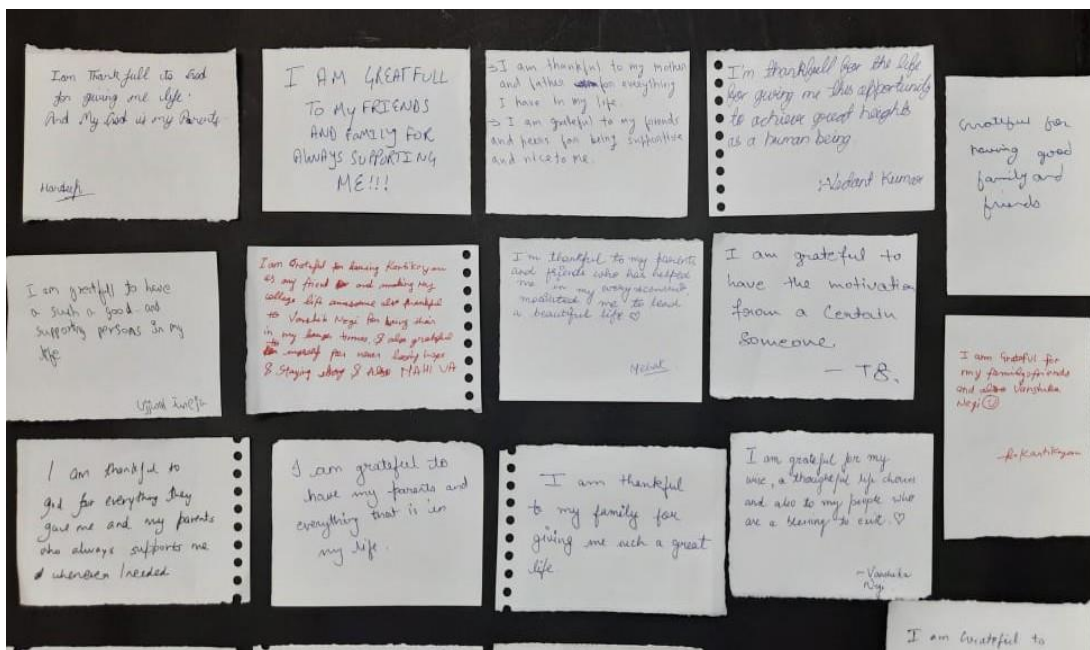 I am Thankfull to God
for giving me life.
And My God is my Parents.
Hardeep
I AM GREATFULL
TO MY FRIENDS
AND FAMILY FOR
ALWAYS SUPPORTING
ME!!!
→ I am thankful to my mother
and father for everything
I have in my life.
→ I am grateful to my friends
and peers for being supportive
and nice to me.
I'm thankfull for the life
for giving me this opportunity
to achieve great heights
as a human being
:-Vedant Kumar
Grateful for
having good
family and
friends
I am greatfull to have
a such a good and
supporting persons in my
life
I am Grateful for having Kartikryan
as my friend and making my
college life awesome also thankful
to Vanshik Negi for being their
in my times, & also grateful
to myself for never losing hope
& Staying strong & Also MAHI VA
I'm thankful to my parents
and friends who has helped
me in my every
me to lead
a beautiful life ♡
Mehak
I am grateful to
have the motivation
from a Certain
someone.
- T8.
I am Grateful for
my family friends
and Vanshika
Negi ☺
- Kartikryan
I am thankful to
god for everything they
gave me and my parents
who always supports me
whenever I needed
I am grateful to
have my parents and
everything that is in
my life.
I am thankful
to my family for
giving me such a great
life
I am grateful for my
wise, a thoughtful life
and also to my people who
are a blessing to exit. ♡
~Vanshika
Negi
I am Grateful to